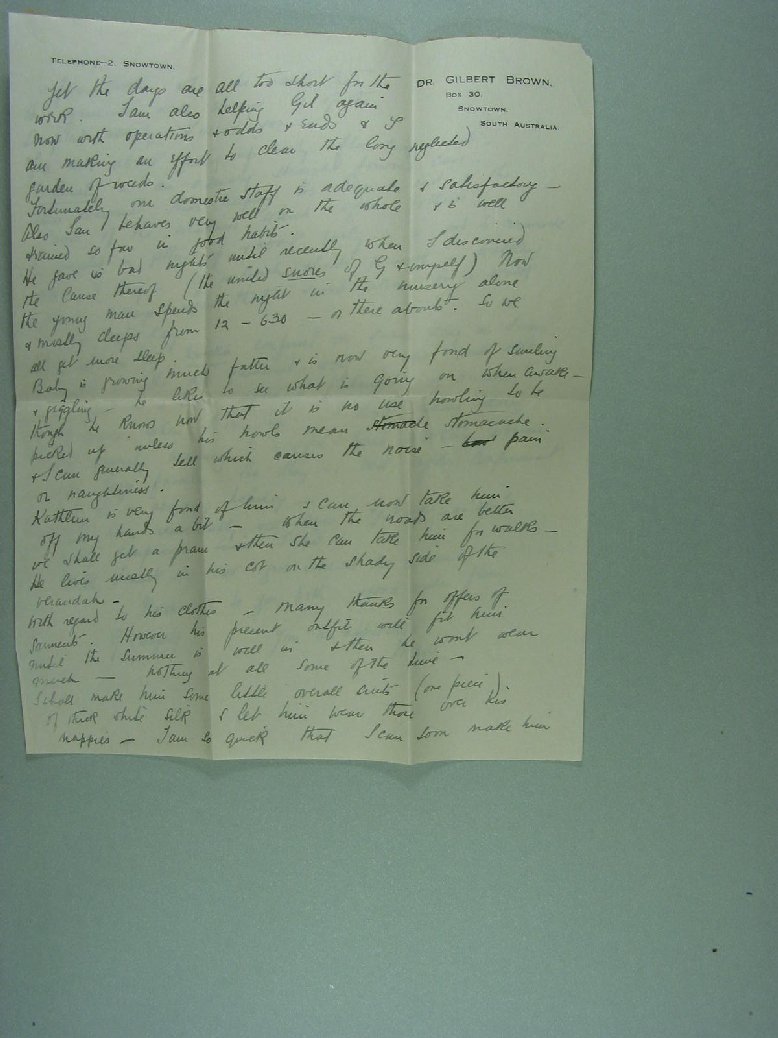 TELEPHONE—2. SNOWTOWN.
DR. GILBERT BROWN,
BOX 30.
SNOWTOWN,
SOUTH AUSTRALIA.
Yet the days are all too short for the
work. I am also helping Gil again
now with operations & odds & ends & I
am making an effort to clear the long neglected
garden of weeds.
Fortunately our domestic staff is adequate & satisfactory —
Also Ian behaves very well on the whole & is well
trained so far in good habits.
He gave us bad nights until recently when I discovered
the cause thereof (the united snores of G & myself) Now
the young man spends the night in the nursery alone
& mostly sleeps from 12 – 6.30 — or there abouts. So we
all get more sleep.
Baby is growing much fatter & is now very fond of smiling
& giggling — he likes to see what is going on when awake —
though he knows now that it is no use howling to be
picked up unless his howls mean stomache stomacache.
& I can generally tell which causes the noise — pain
or naughtiness.
Kathleen is very fond of him & can now take him
off my hands a bit — when the roads are better
we shall get a pram & then she can take him for walks —
He lives usually in his cot on the shady side of the
verandah —
With regard to his clothes — many thanks for offers of
garments. However his present outfit will fit him
until the summer is well in & then he wont wear
much — nothing at all some of the time —
I shall make him some little overall suits (one piece)
of thick white silk & let him wear those over his
nappies — I am so quick that I can soon make him